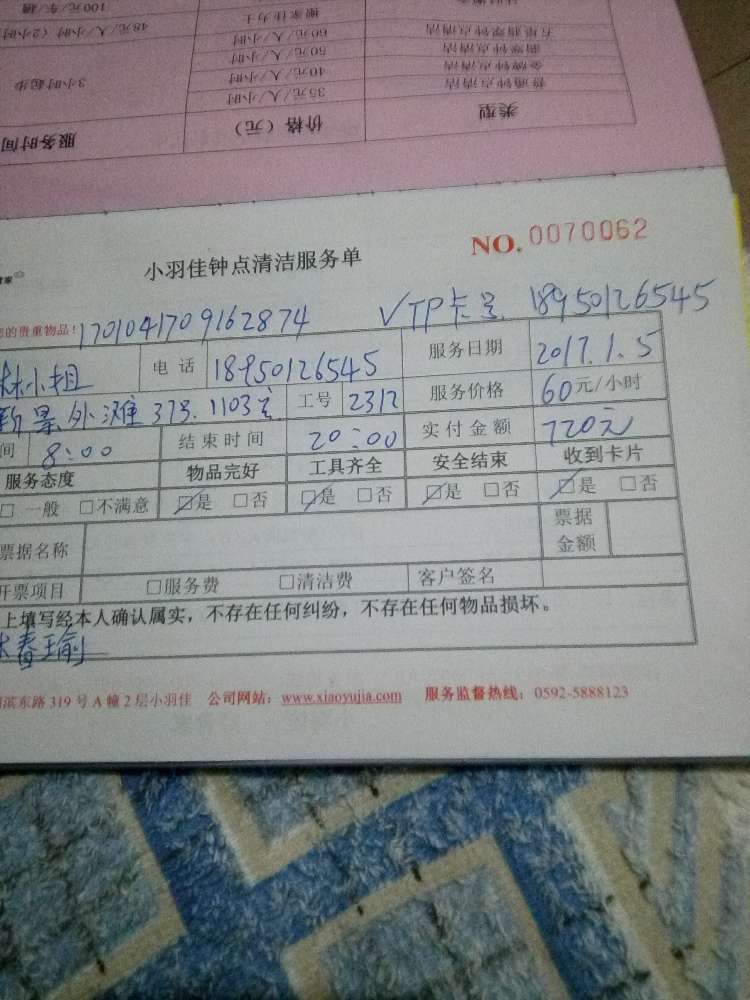 100元/车/趟 搬家佳力士
48元/人/小时(2小时 60元/人/小时 五星翡翠钟点清洁
50元/人/小时 翡翠钟点清洁
40元/人/小时 金牌钟点清洁
3小时起步 35元/人/小时 普通钟点清洁
服务时间 价格(元) 类型
小羽佳钟点清洁服务单 NO.0070062
您的贵重物品! 1701041709162874 VTP卡号 18950126545
林小姐 电话 18950126545 服务日期 2017.1.5
新景外滩 37号.1103室 工号 2312 服务价格 60元/小时
间 8:00 结束时间 20:00 实付金额 720元
服务态度 物品完好 工具齐全 安全结束 收到卡片
□一般 □不满意 ☑是 □否 ☑是 □否 ☑是 □否 ☑是 □否
票据名称 票据金额
开票项目 □服务费 □清洁费 客户签名
上填写经本人确认属实,不存在任何纠纷,不存在任何物品损坏。
林春瑜
滨东路319号A幢2层小羽佳 公司网站:www.xiaoyujia.com 服务监督热线:0592-5888123